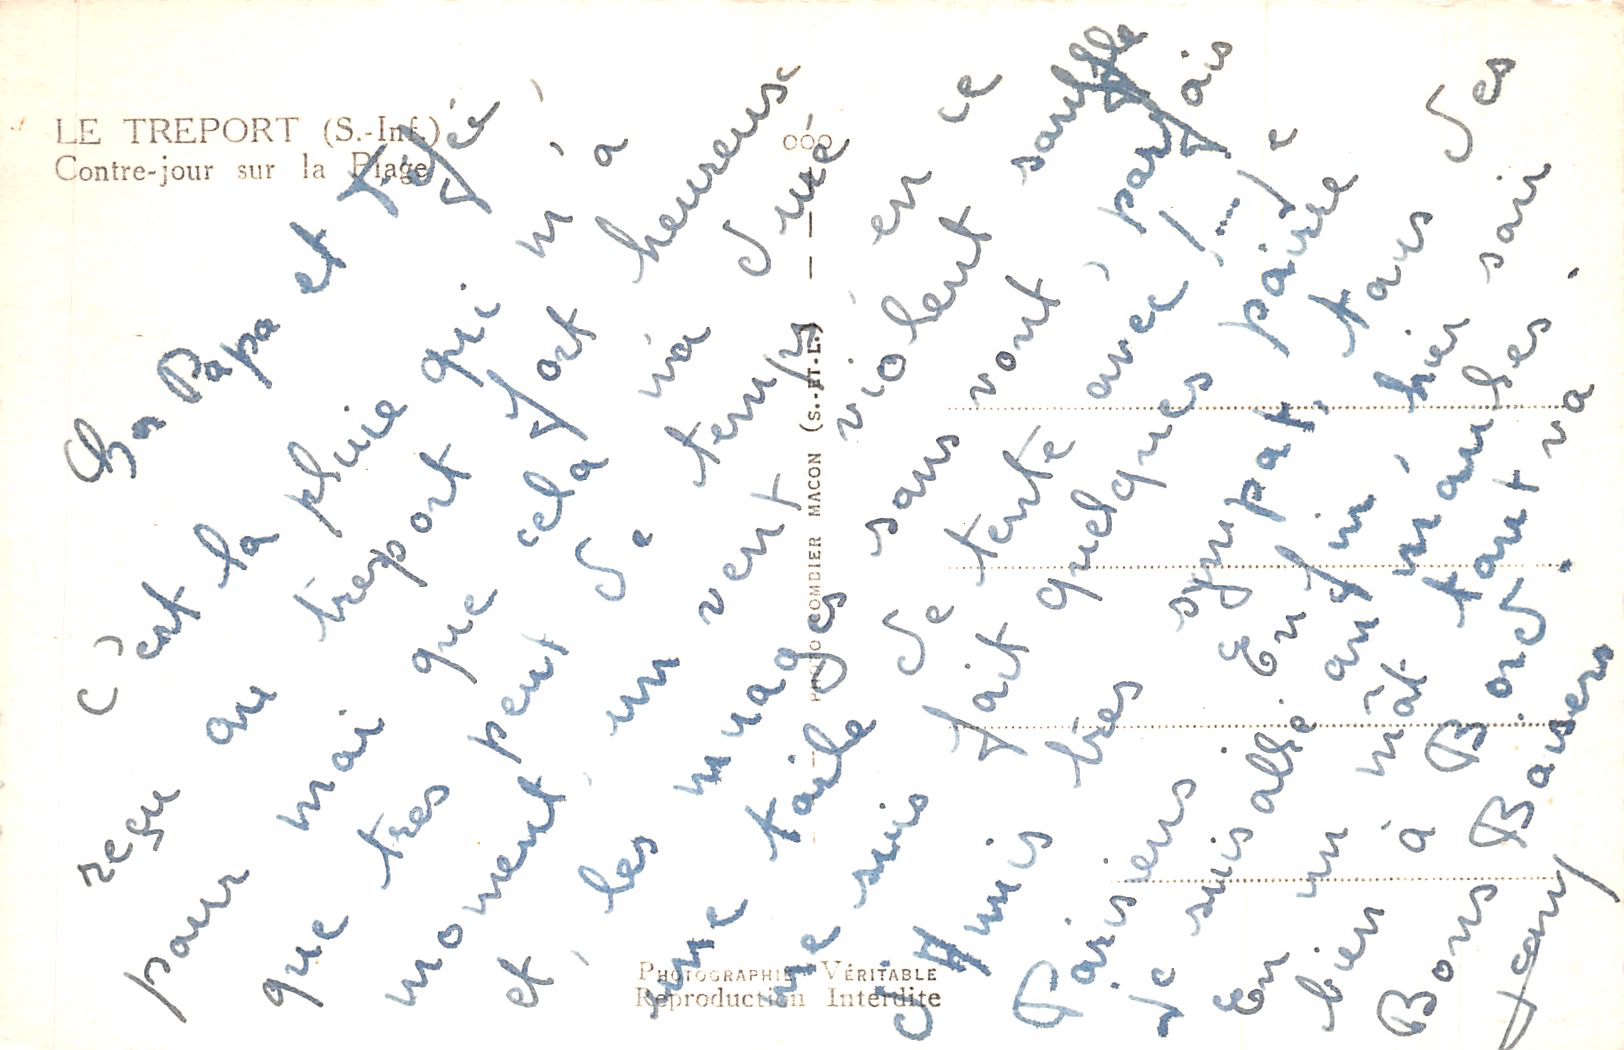 LE TREPORT (S.-Inf.)
Contre-jour sur la Plage
Papa et
C'est la pluie qui m'a
reçu au treport fort heureuse
pour moi que cela n'a duré
que tres peut de temps, en ce
moment, un vent violent souffle
et, les nuages sans vont, parfois
une toile de tente avec !...! Je
me suis fait quelques paire
d'Amis très sympat, tous des
Parisiens Enfin, hier soir
Je suis allé au
En un môt tout va
bien à Bord.
Bons Baisers
PHOTO COMBIER MACON (S.-ET-L.)
PHOTOGRAPHIE VÉRITABLE
Reproduction Interdite